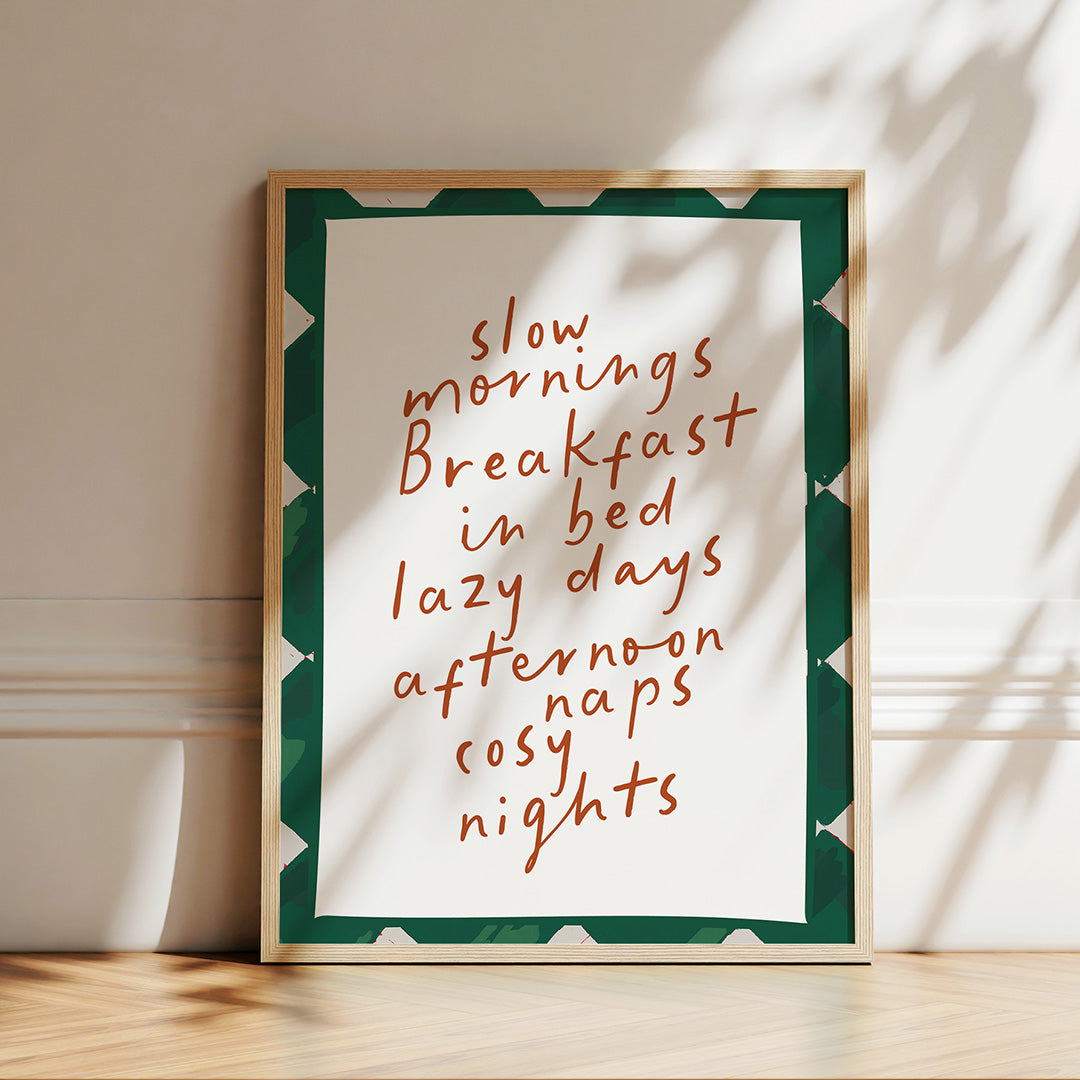 slow
mornings
Breakfast
in bed
lazy days
afternoon
naps
cosy
nights